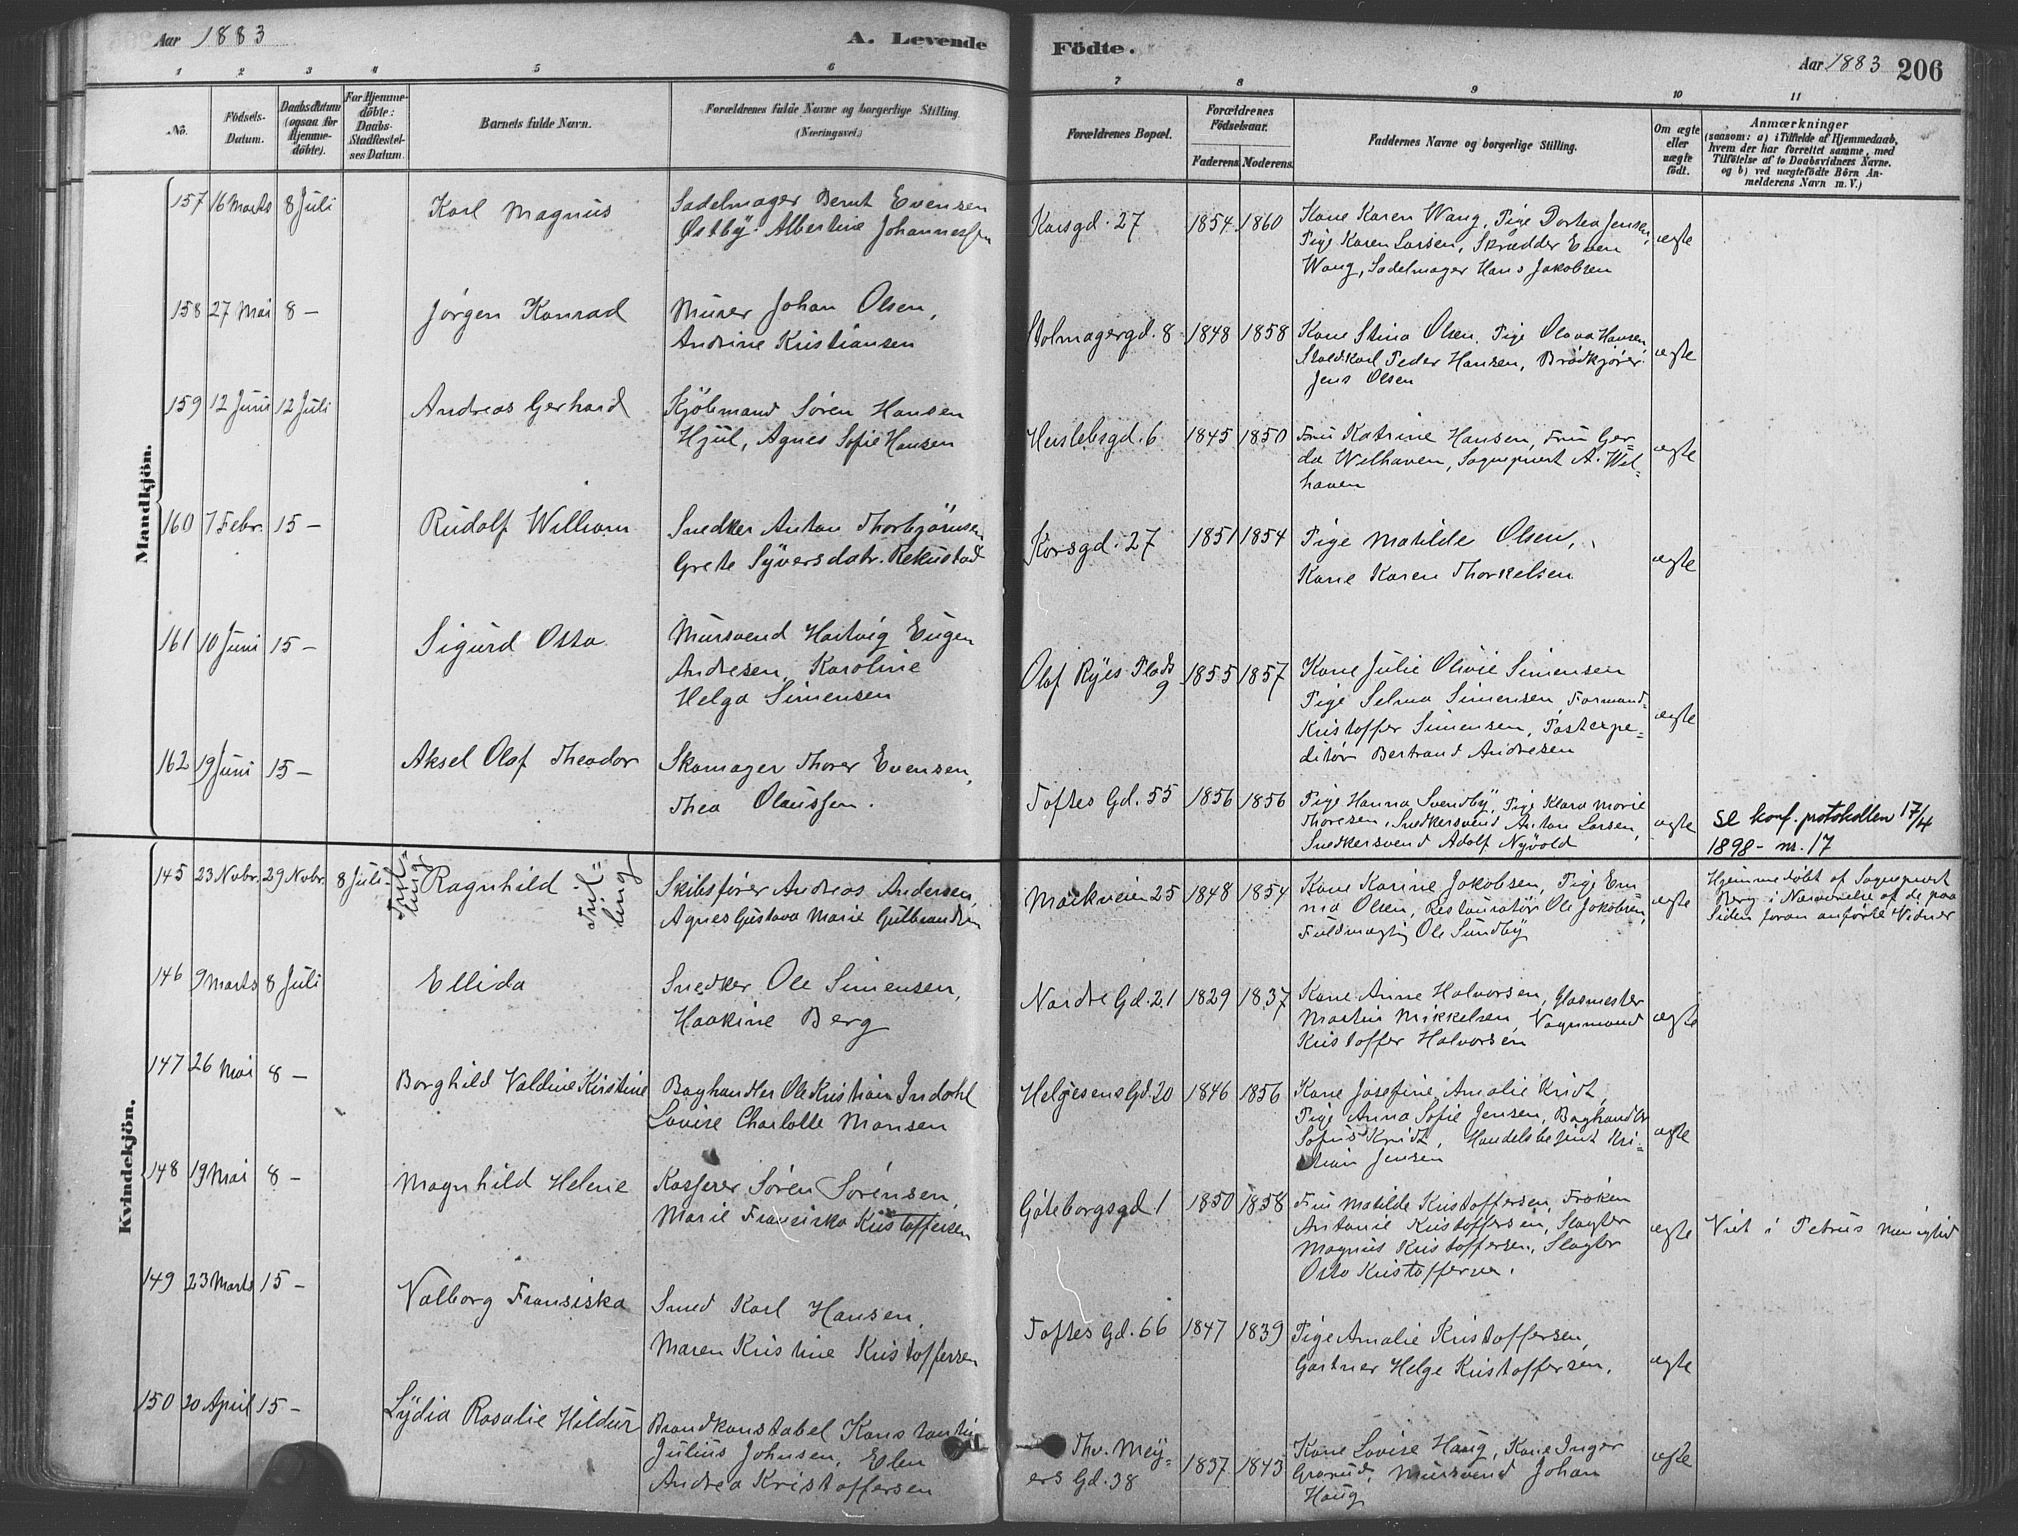 Aar 1883
A. Levende Födte.
Aar 1883
206
1 2 3 4 5 6 7 8 9 10 11
No.
Födsels-Datum.
Daabsdatum (ogsaa for Hjemme-döbte).
For Hjemme-döbte: Daabs-Stadfæstel-ses Datum.
Barnets fulde Navn.
Forældrenes fulde Navne og borgerlige Stilling (Næringsvei.)
Forældrenes Bopæl.
Forældrenes Födselsaar.
Faderens. Moderens.
Faddernes Navne og borgerlige Stilling.
Om ægte eller uægte födt.
Anmærkninger
(saasom: a) i Tilfælde af Hjemmedaab, hvem der har forrettet samme, med Tilföielse af to Daabsvidners Navne, og b) ved uægtefödte Börn An-melderens Navn m. V.)
Mandkjön.
157 16 Marts 8 Juli
Karl Magnus
Sadelmager Bernt Evensen
Østby. Albertine Johannessen
Korsgd. 27
1854 1860
Kone Karen Wang, Pige Dortea Jensen,
Pige Karen Larsen, Skrædder Even
Wang, Sadelmager Hans Jakobsen
ægte
158 27 Mai 8 —
Jørgen Konrad
Murer Johan Olsen,
Andrine Kristiansen
Stolmagergd. 8
1848 1858
Kone Stina Olsen, Pige Olava Hansen,
Staldkarl Peder Hansen, Brødkjører
Jens Olsen
ægte
159 12 Juni 12 Juli
Andreas Gerhard
Kjøbmand Søren Hansen
Hjul, Agnes Sofie Hansen
Heslebsgd. 6
1845 1850
Fru Katrine Hansen, Fru Ger-
da Welhaven, Sogneprest A. Wel-
haven
ægte
160 7 Febr. 15 —
Rudolf William
Snedker Anton Thorbjørnsen
Grete Syversdatr. Rekustad
Korsgd. 27
1851 1854
Pige Matilde Olsen,
Kone Karen Thorkelsen
ægte
161 10 Juni 15 —
Sigurd Otto
Mursvend Hartvig Eugen
Andresen, Karoline
Helga Simensen
Olaf Ryes Plads 9
1855 1857
Kone Julie Olivie Simensen
Pige Selma Simensen, Formand
Kristoffer Simensen, Postexpe-
ditør Bertrand Andresen
ægte
162 19 Juni 15 —
Aksel Olaf Theodor
Skomager Thorer Evensen,
Thea Olaussen.
Toftes Gd. 55
1856 1856
Pige Hanna Svendby, Pige Klara Marie
Thoresen, Snedkersvend Anton Larsen,
Snedkersvend Adolf Nyvold
ægte
se konf. protokollen 17/4
1898 - nr. 17
Kvindekjön.
145 23 Novbr. 29 Novbr. 8 Juli
Tvil-ling Ragnhild Tvil=ling
Skibsfører Andreas Andersen,
Agnes Gustava Marie Gulbrandsen
Markveien 25
1848 1854
Kone Karine Jakobsen, Pige Em-
ma Olsen, Restauratør Ole Jakobsen,
Fuldmægtig Ole Sundby
ægte
Hjemmedøbt af Sogneprest
Berg i Nærværelse af de paa
Siden foran anførte Vidner
146 9 Marts 8 Juli
Ellida
Snedker Ole Simensen,
Haakine Berg
Nordre Gd. 21
1829 1837
Kone Anne Halvorsen, Glasmester
Martin Mikkelsen, Vognmand
Kristoffer Halvorsen
ægte
147 26 Mai 8 —
Borghild Valdine Kirstine
Boghandler Ole Kristian Indahl
Lovise Charlotte Monsen
Helgesens Gd. 20
1846 1856
Kone Josefine Amalie Kridt,
Pige Anna Sofie Jensen, Boghandler
Sofus Kridt, Handelsbetjent Kri-
stian Jensen
ægte
148 19 Mai 8 —
Magnhild Helene
Kasserer Søren Sørensen,
Marie Franciska Kristoffersen
Gøteborgsgd 1
1850 1858
Fru Matilde Kristoffersen, Frøken
Antonie Kristoffersen, Slagter
Magnus Kristoffersen, Slagter
Otto Kristoffersen.
ægte
Viet i Petrus Menighed
149 23 Marts 15 —
Valborg Fransiska
Smed Karl Hansen,
Maren Kristine Kristoffersen
Toftes Gd. 66
1847 1839
Pige Amalie Kristoffersen,
Gartner Helge Kristoffersen.
ægte
150 20 April 15 —
Lydia Rosalie Hildur
Brandkonstabel Konstantin
Julius Johnsen, Elen
Andrea Kristoffersen
Thv. Mey-
ers Gd. 38
1837 1843
Kone Lovise Haug, Kone Inger
Grorud, Mursvend Johan
Haug
ægte